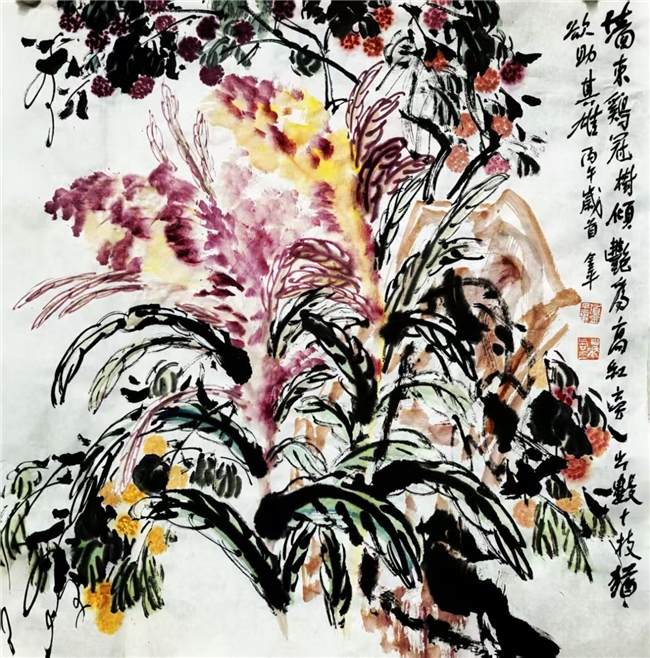 墙东鸡冠树倾艳为高红旁出数十枝犹
欲助其雄丙午岁首